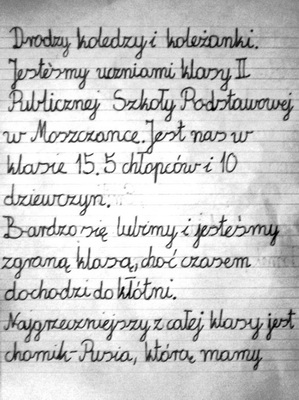 Drodzy koledzy i koleżanki.
Jesteśmy uczniami klasy II
Publicznej Szkoły Podstawowej
w Moszczance. Jest nas w
klasie 15. 5 chłopców i 10
dziewczyn.
Bardzo się lubimy i jesteśmy
zgraną klasą, choć czasem
dochodzi do kłótni.
Najgrzeczniejszy z całej klasy jest
chomik-Pusia, którą mamy